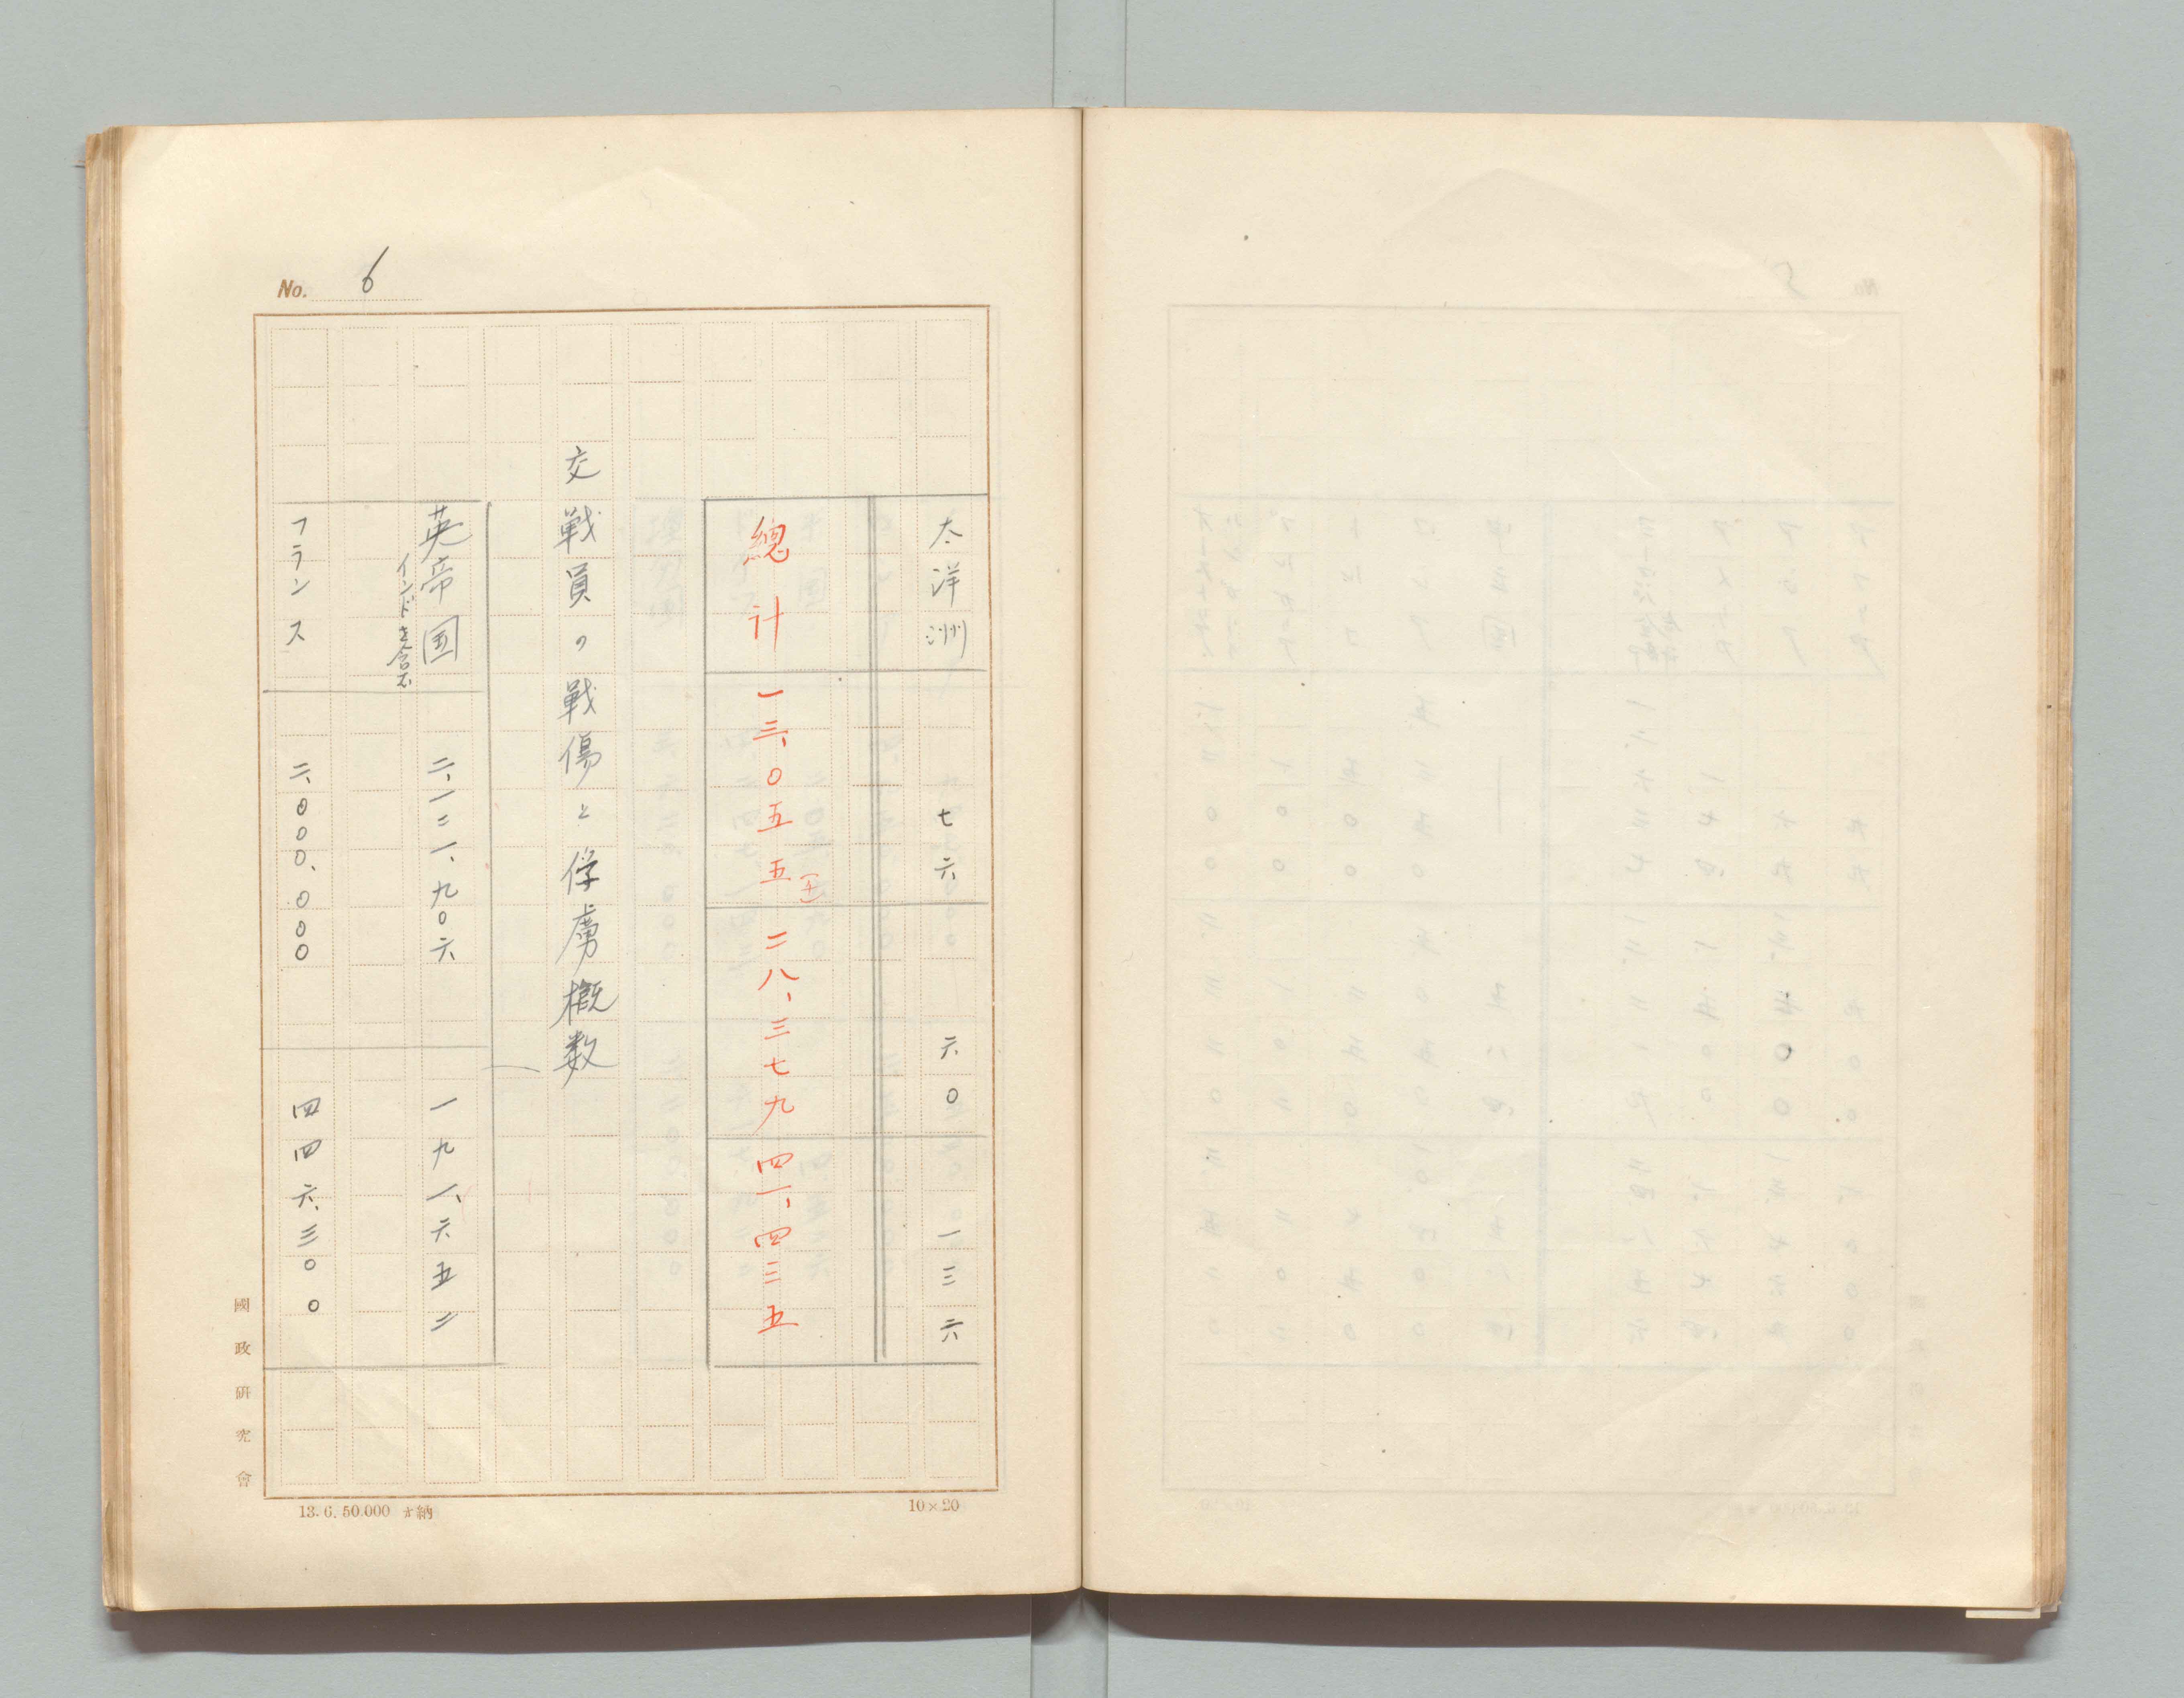 No. 6
太洋洲 七六 六〇 一三六
總計 一三、〇五五 二八、三七九 四一、四三五
交戦員の戦傷と俘虜概数
英帝国 二、一二一、九〇六 一九一、六五二
インドを含む
フランス 二、〇〇〇、〇〇〇 四四六、三〇〇
國政研究會
13. 6. 50.000 納
10×20